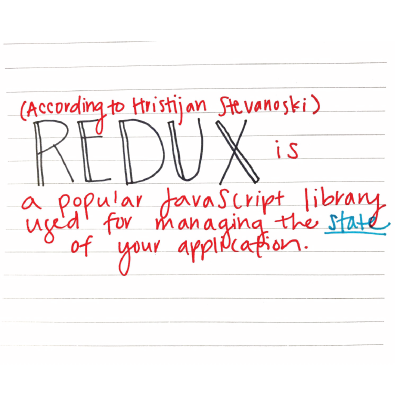 (According to Hristijan Stevanoski)
REDUX is
a popular JavaScript library
used for managing the state
of your application.